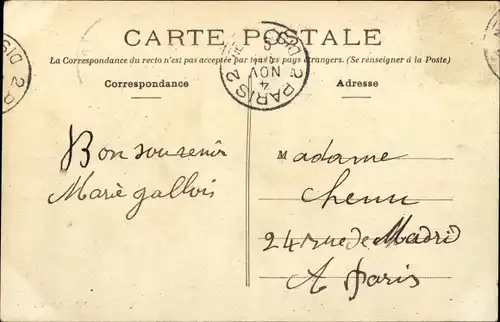 CARTE POSTALE
La Correspondance du recto n'est pas acceptée par tous les pays étrangers. (Se renseigner à la Poste)
Correspondance
Adresse
PARIS 2
4
NOV
DIS
Bon souvenir
Marie Gallois
Madame
Chenu
24 rue de Madrid
A Paris